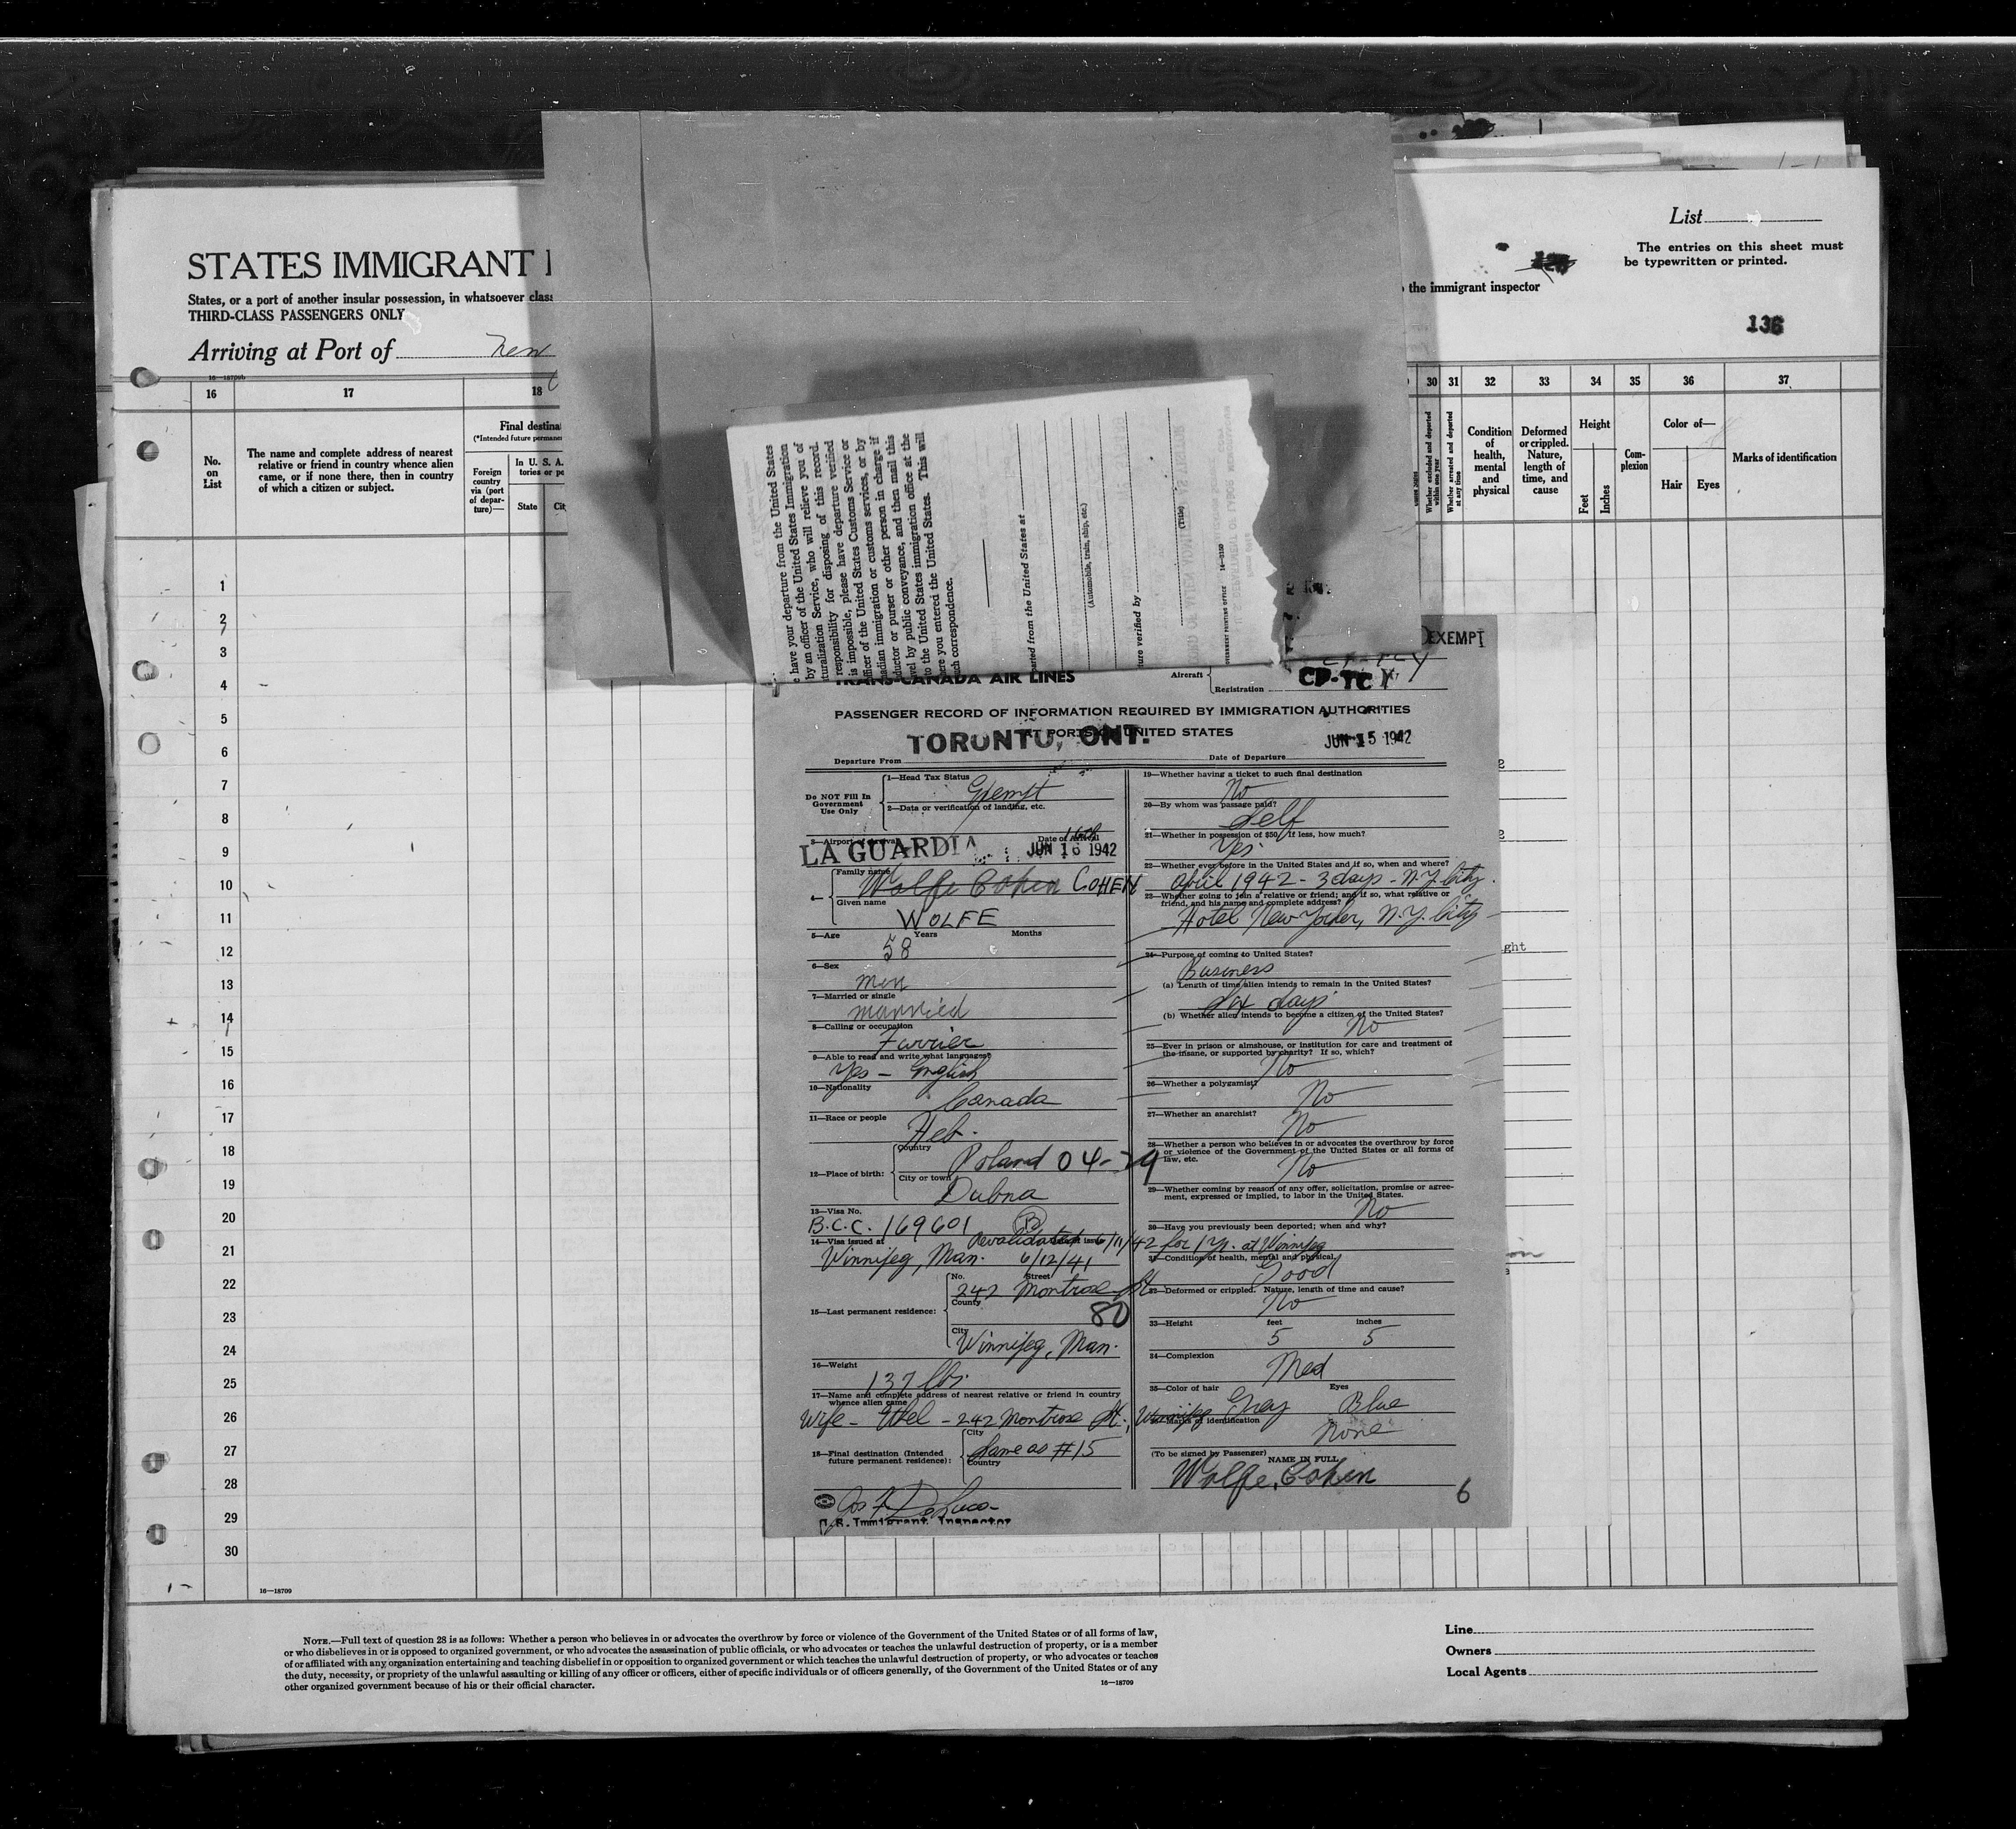 STATES IMMIGRANT
States, or a port of another insular possession, in whatsoever class
THIRD-CLASS PASSENGERS ONLY
Arriving at Port of New
16—18709b
List
The entries on this sheet must
be typewritten or printed.
the immigrant inspector
136
16 17 18
No.
on
List
The name and complete address of nearest
relative or friend in country whence alien
came, or if none there, then in country
of which a citizen or subject.
Final destina
(*Intended future permane
Foreign
country
via (port
of depar-
ture)—
In U. S. A.
tories or po
State
30 31 32 33 34 35 36 37
Whether excluded and deported
within one year
Whether arrested and deported
at any time
Condition
of
health,
mental
and
physical
Deformed
or crippled.
Nature,
length of
time, and
cause
Height
Feet
Inches
Com-
plexion
Color of—
Hair Eyes
Marks of identification
1
2
3
4
5
6
7
8
9
10
11
12
13
14
15
16
17
18
19
20
21
22
23
24
25
26
27
28
29
30
16—18709
e have your departure from the United States
by an officer of the United States Immigration
turalization Service, who will relieve you of
responsibility for disposing of this record.
is impossible, please have departure verified
fficer of the United States Customs Service or
adian immigration or customs services, or by
ductor or purser or other person in charge if
vel by public conveyance, and then mail this
to the United States immigration office at the
ere you entered the United States. This will
ch correspondence.
parted from the United States at
(Automobile, train, ship, etc.)
ture verified by
(Title)
EXEMPT
TRANS-CANADA AIR LINES
Aircraft
Registration
CP-TC
PASSENGER RECORD OF INFORMATION REQUIRED BY IMMIGRATION AUTHORITIES
AT PORTS IN UNITED STATES
TORONTO, ONT.
JUN 15 1942
Departure From
Date of Departure
Do NOT Fill In
Government
Use Only
1—Head Tax Status
Exempt
2—Data or verification of landing, etc.
3—Airport of arrival
Date of
16th
LA GUARDIA
JUN 16 1942
4—
Family name
Wolfe Cohen COHEN
Given name
WOLFE
5—Age
58 Years Months
6—Sex
men
7—Married or single
married
8—Calling or occupation
Furrier
9—Able to read and write what languages?
Yes - English
10—Nationality
Canada
11—Race or people
Heb.
12—Place of birth:
Country
Poland 04-29
City or town
Dubna
13—Visa No.
B.C.C. 169601
14—Visa issued at
Revalidated 6/11/42 for 1 yr. at Winnipeg
Winnipeg, Man. 6/12/41
15—Last permanent residence:
No. Street
242 Montrose St.
County
80
City
Winnipeg, Man.
16—Weight
137 lbs.
17—Name and complete address of nearest relative or friend in country
whence alien came
Wife - Ethel - 242 Montrose St., Winnipeg
18—Final destination (Intended
future permanent residence):
City
Same as #15
Country
U.S. Immigrant Inspector
19—Whether having a ticket to such final destination
No
20—By whom was passage paid?
Self
21—Whether in possession of $50. If less, how much?
Yes
22—Whether ever before in the United States and if so, when and where?
April 1942 - 3 days - N.Y. City.
23—Whether going to join a relative or friend; and if so, what relative or
friend, and his name and complete address?
Hotel New Yorker, N.Y. City
24—Purpose of coming to United States?
Business
(a) Length of time alien intends to remain in the United States?
Six days
(b) Whether alien intends to become a citizen of the United States?
No
25—Ever in prison or almshouse, or institution for care and treatment of
the insane, or supported by charity? If so, which?
No
26—Whether a polygamist?
No
27—Whether an anarchist?
No
28—Whether a person who believes in or advocates the overthrow by force
or violence of the Government of the United States or all forms of
law, etc.
No
29—Whether coming by reason of any offer, solicitation, promise or agree-
ment, expressed or implied, to labor in the United States.
No
30—Have you previously been deported; when and why?
31—Condition of health, mental and physical.
Good
32—Deformed or crippled. Nature, length of time and cause?
No
33—Height feet inches
5 5
34—Complexion
Med
35—Color of hair Eyes
Gray Blue
36—Marks of identification
None
(To be signed by Passenger) NAME IN FULL
Wolfe Cohen
6
NOTE.—Full text of question 28 is as follows: Whether a person who believes in or advocates the overthrow by force or violence of the Government of the United States or of all forms of law,
or who disbelieves in or is opposed to organized government, or who advocates the assassination of public officials, or who advocates or teaches the unlawful destruction of property, or is a member
of or affiliated with any organization entertaining and teaching disbelief in or opposition to organized government or which teaches the unlawful destruction of property, or who advocates or teaches
the duty, necessity, or propriety of the unlawful assaulting or killing of any officer or officers, either of specific individuals or of officers generally, of the Government of the United States or of any
other organized government because of his or their official character.
16—18709
Line
Owners
Local Agents